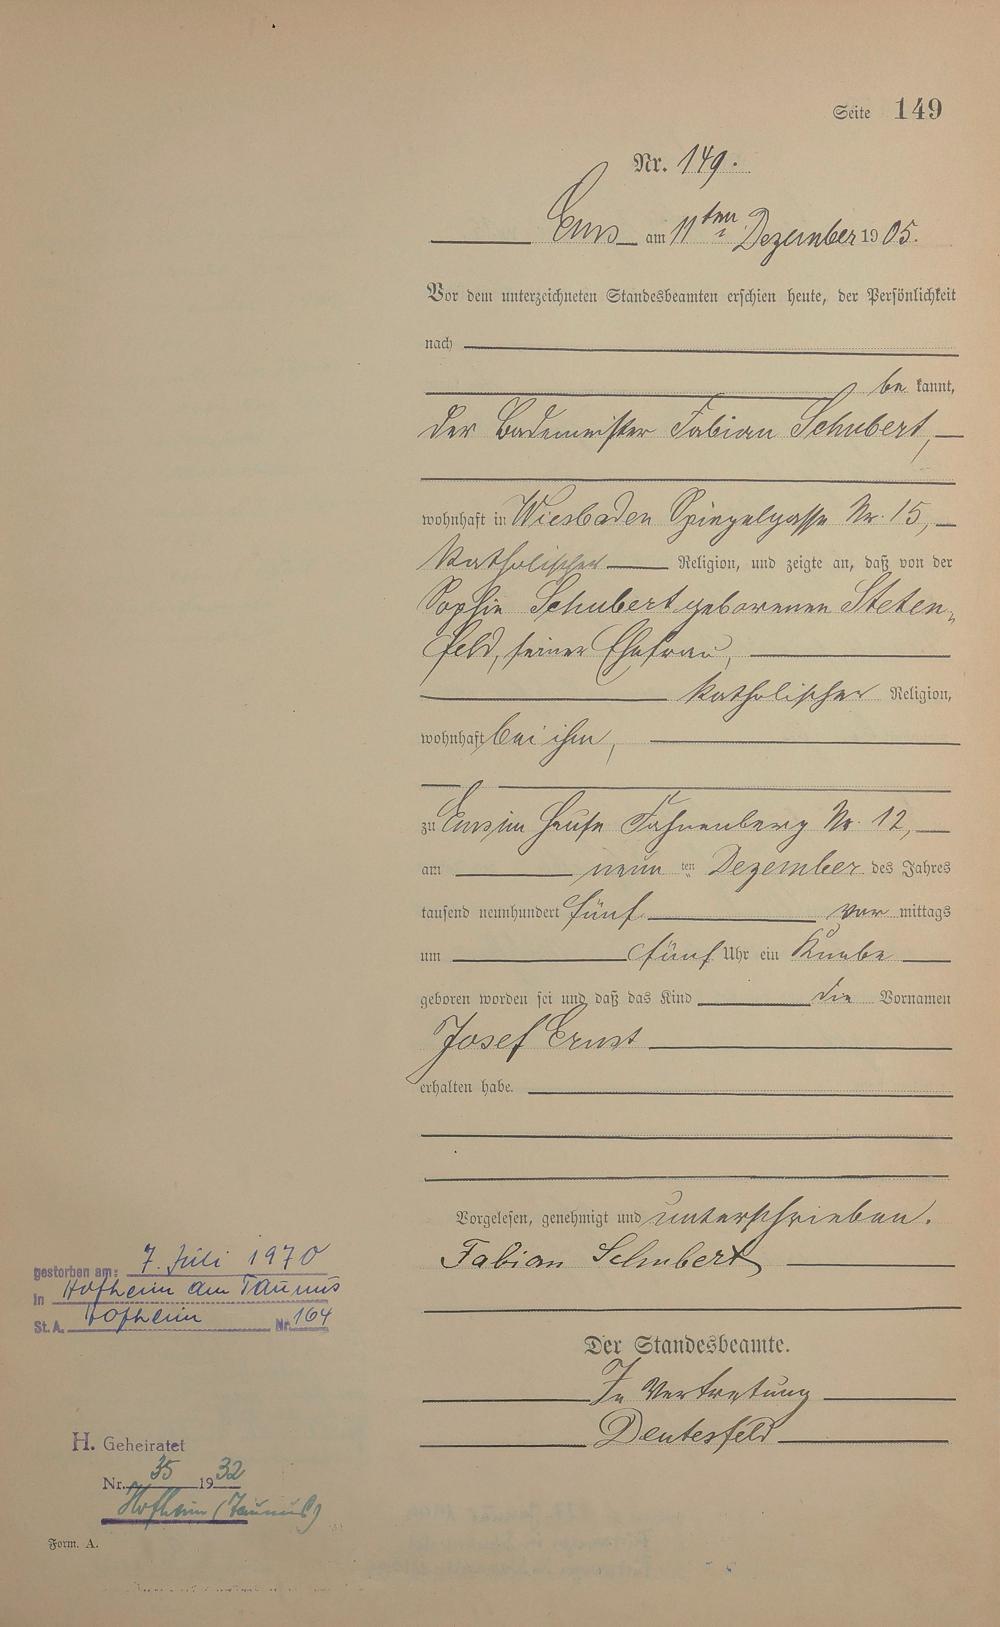 Seite 149
Nr. 149.
Ems am 11ten Dezember 1905.
Vor dem unterzeichneten Standesbeamten erschien heute, der Persönlichkeit
nach
be kannt,
der Bademeister Fabian Schubert,
wohnhaft in Wiesbaden Spiegelgasse Nr. 15,
katholischer Religion, und zeigte an, daß von der
Sophie Schubert geborenen Steten-
feld, seiner Ehefrau,
katholischer Religion,
wohnhaft bei ihm,
zu Ems im Hause Fahnenberg Nr. 12,
am neun ten Dezember des Jahres
tausend neunhundert fünf vor mittags
um fünf Uhr ein Knabe
geboren worden sei und daß das Kind die Vornamen
Josef Ernst
erhalten habe.
Vorgelesen, genehmigt und unterschrieben.
Fabian Schubert
Der Standesbeamte.
In Vertretung
Deutesfeld
gestorben am: 7. Juli 1970
in Hofheim am Taunus
St. A. Hofheim Nr. 164
H. Geheiratet
Nr. 35 1932
Hofheim (Taunus)
Form. A.